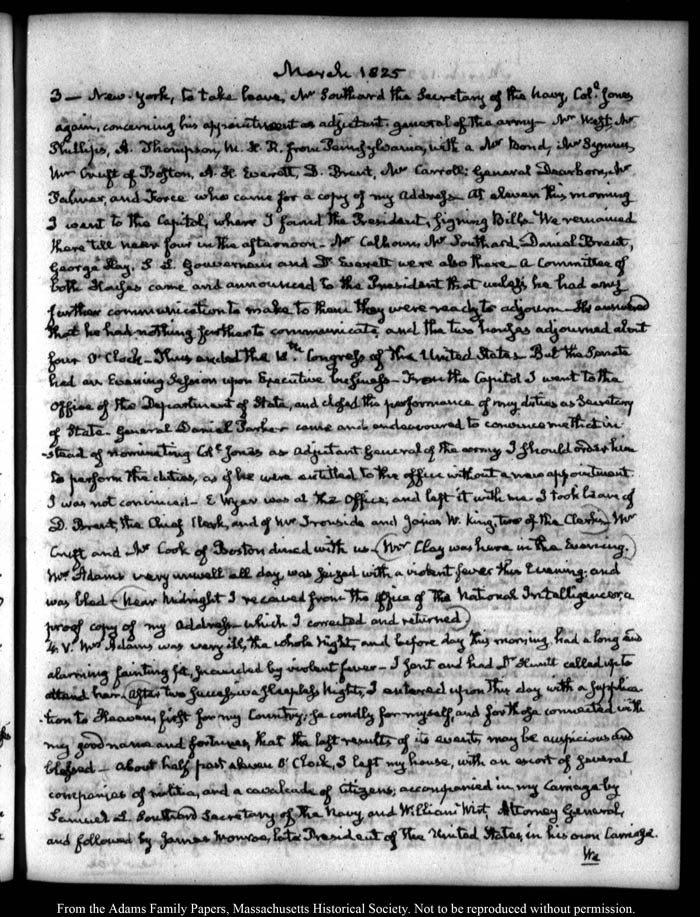 March 1825
3 — New-York, to take leave, Mr Southard the Secretary of the Navy, Coll. Jones
again, concerning his appointment as adjutant general of the army — Mr West, Mr
Phillips, A. Thompson, M. H. R. from Pennsylvania, with a Mr Bond, Mr Symmes,
Mr Cruft of Boston, A. H. Everett, D. Brent, Mr Carroll; General Dearborn, Mr
Palmer, and Force who came for a copy of my Address — At eleven this morning
I went to the Capitol, where I found the President, signing Bills. We remained
there till near four in the afternoon — Mr Calhoun, Mr Southard, Daniel Brent,
George Hay, S. L. Gouverneur and Dr Everett were also there — A Committee of
both Houses came and announced to the President that unless he had any
further communication to make to them they were ready to adjourn — He answered
that he had nothing further to communicate, and the two houses adjourned about
four O'Clock — Thus ended the 18th. Congress of the United States — But the Senate
had an Evening Session upon Executive business — From the Capitol I went to the
Office of the Department of State, and closed the performance of my duties as Secretary
of State — General Daniel Parker came and endeavoured to convince me that in-
-stead of nominating Coll. Jones as Adjutant General of the army I should order him
to perform the duties, as if he were entitled to the office without a new appointment.
I was not convinced — E Wyer was at the Office, and left it with me. I took leave of
D. Brent, the Chief Clerk, and of Mr Ironside and Jonas W. King, two of the Clerks. Mr
Cruft and Mr Cook of Boston dined with us — (Mr Clay was here in the Evening.)
Mrs Adams very unwell all day, was seized with a violent fever this Evening; and
was bled — (Near Midnight I received from the office of the National Intelligencer, a
proof copy of my Address which I corrected and returned)
4. V. Mrs Adams was very ill, the whole Night, and before day this morning, had a long and
alarming fainting fit, succeeded by violent fever — I sent and had Dr Huntt called up to
attend her. After two successive sleepless Nights, I entered upon this day with a supplica-
-tion to Heaven, first for my Country; secondly for myself, and for those connected with
my good name and fortunes, that the last results of its events may be auspicious and
blessed — About half past eleven O'Clock, I left my house, with an escort of several
companies of militia, and a cavalcade of Citizens; accompanied in my Carriage by
Samuel L. Southard Secretary of the Navy, and William Wirt, Attorney General,
and followed by James Monroe, late President of the United States, in his own Carriage.
We
From the Adams Family Papers, Massachusetts Historical Society. Not to be reproduced without permission.